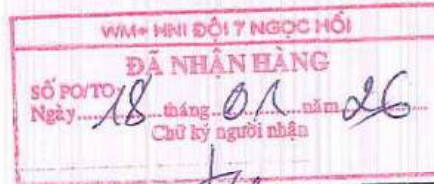 WM+ HNI ĐỘI 7 NGỌC HỒI
ĐÃ NHẬN HÀNG
SỐ PO/TO
Ngày 18 tháng 01 năm 26
Chữ ký người nhận